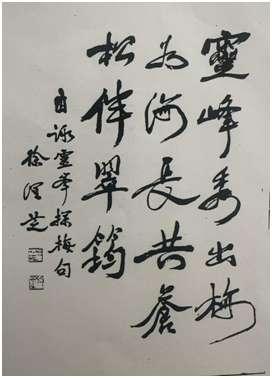 靈峰秀出梅
为海長共蒼
松伴翠筠
自詠靈峯探梅句
徐润芝